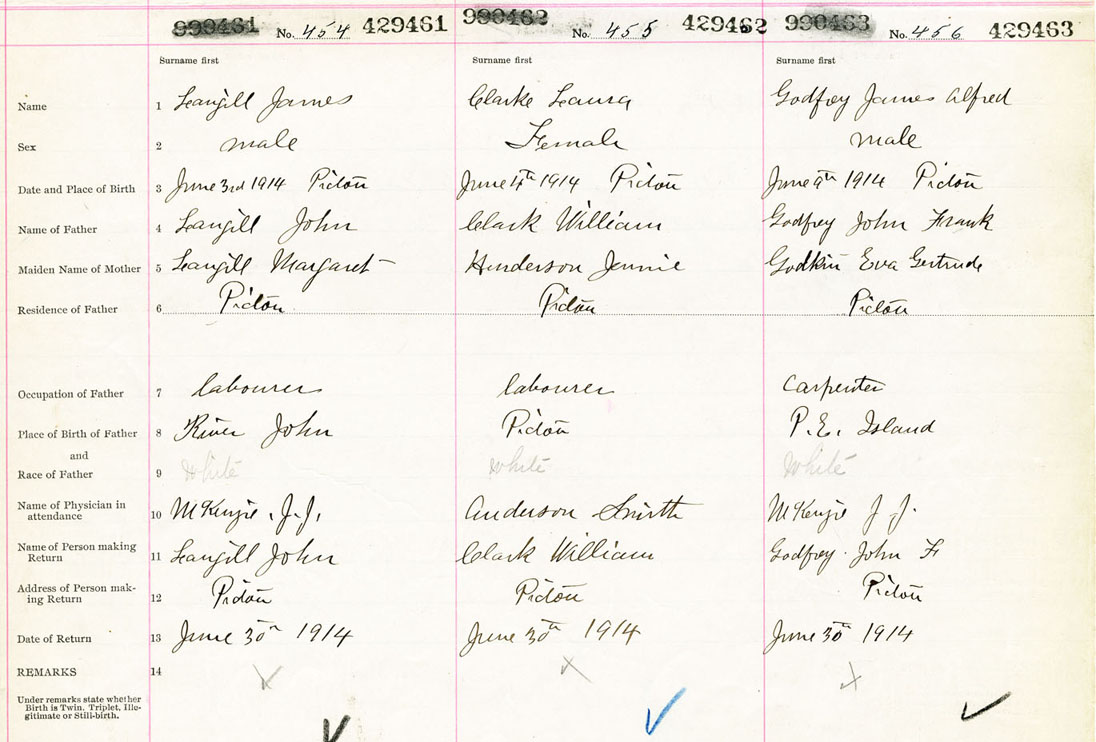 990461 No. 454 429461 990462 No. 455 429462 990463 No. 456 429463
Surname first Surname first Surname first
Name 1 Langill James Clarke Laura Godfrey James Alfred
Sex 2 male Female male
Date and Place of Birth 3 June 3rd 1914 Pictou June 4th 1914 Pictou June 9th 1914 Pictou
Name of Father 4 Langill John Clark William Godfrey John Frank
Maiden Name of Mother 5 Langill Margaret Henderson Jennie Godkin Eva Gertrude
Residence of Father 6 Pictou Pictou Pictou
Occupation of Father 7 labourer labourer Carpenter
Place of Birth of Father 8 River John Pictou P.E. Island
and
Race of Father 9 White White White
Name of Physician in
attendance 10 McKenzie, J.J. Anderson Smith McKenzie J J.
Name of Person making
Return 11 Langill John Clark William Godfrey John F
Address of Person mak-
ing Return 12 Pictou Pictou Pictou
Date of Return 13 June 30th 1914 June 30th 1914 June 30th 1914
REMARKS 14
Under remarks state whether
Birth is Twin, Triplet, Ille-
gitimate or Still-birth.